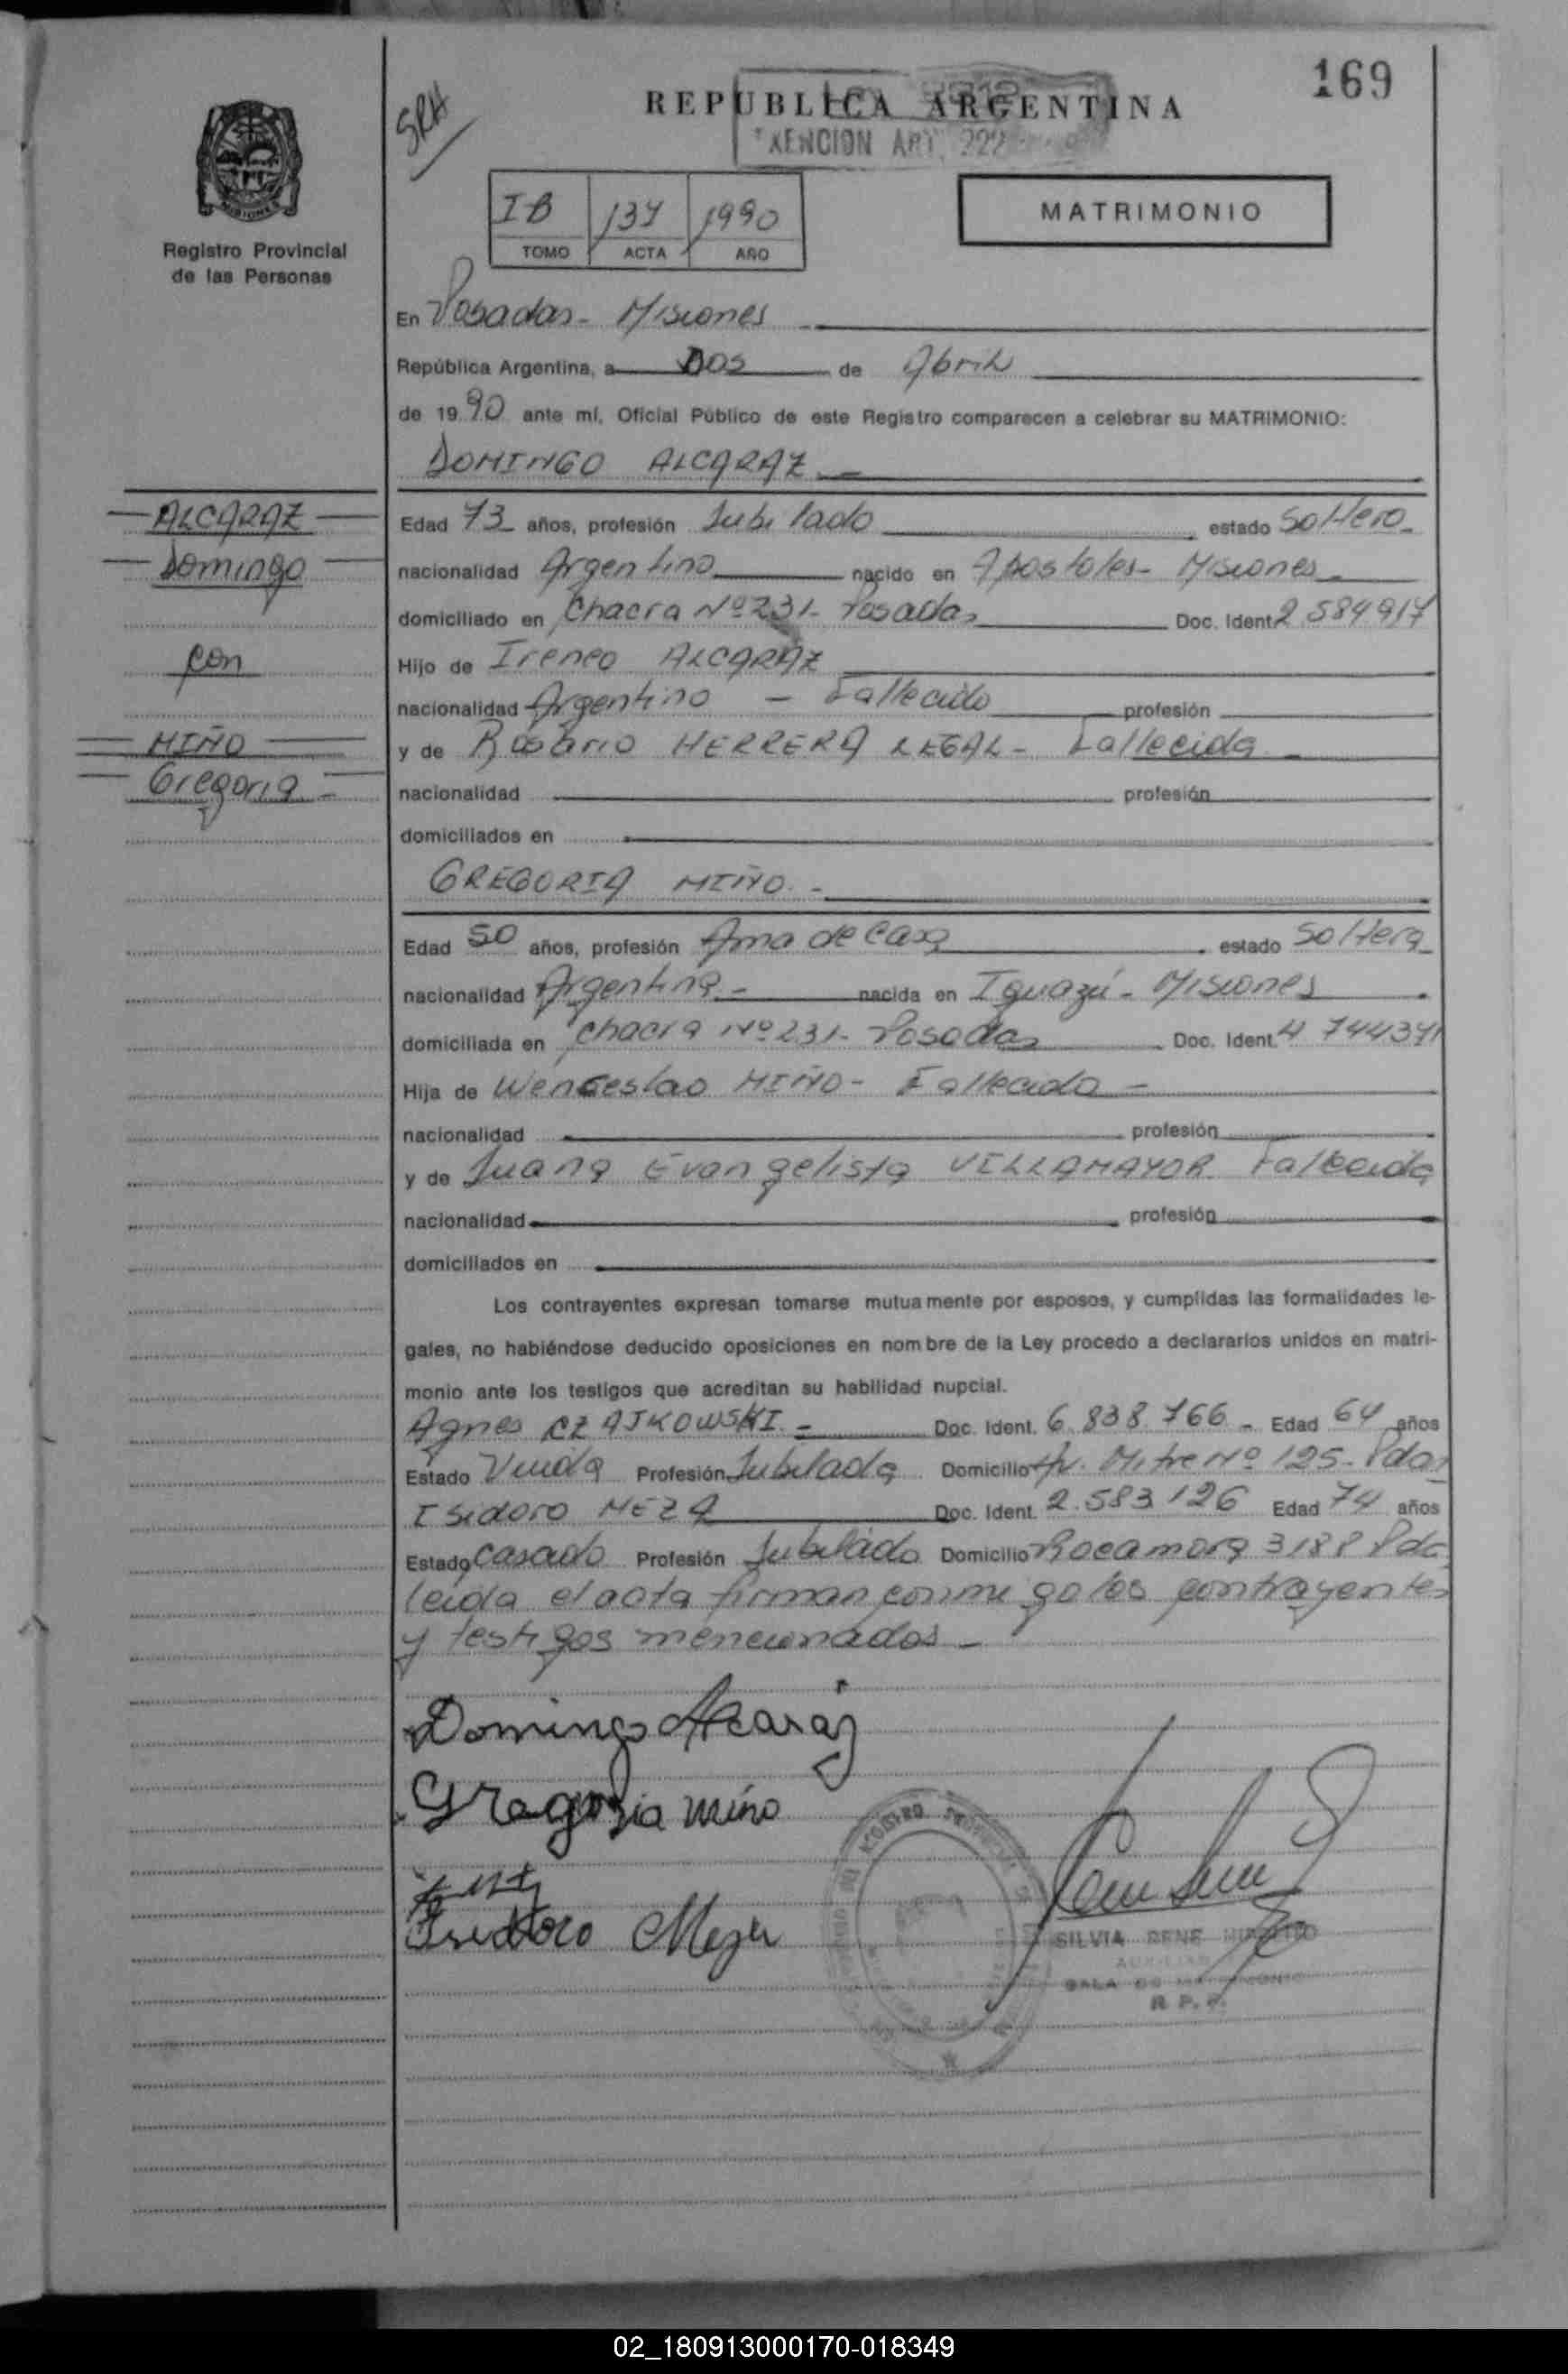 169
SRH
REPUBLICA ARGENTINA
EXENCION ART. 222
MISIONES
Registro Provincial
de las Personas
IB 134 1990
TOMO ACTA AÑO
MATRIMONIO
En Posadas - Misiones
República Argentina, a Dos de Abril
de 1990 ante mí, Oficial Público de este Registro comparecen a celebrar su MATRIMONIO:
DOMINGO ALCARAZ
ALCARAZ
Domingo
con
MIÑO
Gregoria
Edad 73 años, profesión Jubilado estado Soltero
nacionalidad Argentino nacido en Apóstoles - Misiones
domiciliado en Chacra Nº 231 - Posadas Doc. Ident. 2.584917
Hijo de Ireneo ALCARAZ
nacionalidad Argentino - Fallecido profesión
y de Rosario HERRERA LEGAL - Fallecida
nacionalidad profesión
domiciliados en
GREGORIA MIÑO
Edad 50 años, profesión Ama de Casa estado Soltera
nacionalidad Argentina nacida en Iguazú - Misiones
domiciliada en Chacra Nº 231 - Posadas Doc. Ident. 4 744341
Hija de Wenceslao MIÑO - Fallecido
nacionalidad profesión
y de Juana Evangelista VILLAMAYOR Fallecida
nacionalidad profesión
domiciliados en
Los contrayentes expresan tomarse mutuamente por esposos, y cumplidas las formalidades le-
gales, no habiéndose deducido oposiciones en nombre de la Ley procedo a declararlos unidos en matri-
monio ante los testigos que acreditan su habilidad nupcial.
Agnes CZAJKOWSKI Doc. Ident. 6.838.766 - Edad 64 años
Estado Viuda Profesión Jubilada Domicilio Av. Mitre Nº 125 - Pdas
Isidoro MEZA Doc. Ident. 2.583126 Edad 74 años
Estado Casado Profesión Jubilado Domicilio Rocamora 3188 Pdas
leída el acta firman conmigo los contrayentes
y testigos mencionados
Domingo Alcaraz
Gregoria Miño
Isidoro Meza
REGISTRO PROVINCIAL
SILVIA RENE
SALA DE MATRIMONIO
R. P. P.
02_180913000170-018349